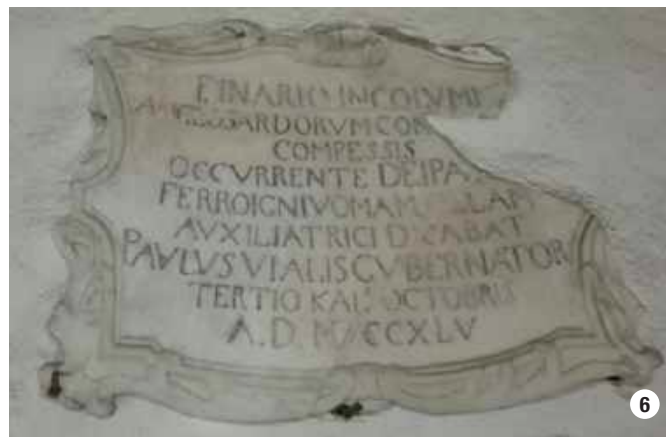 FINARIO INCOLVMI
COMPESSIS
OCCVRRENTE DEIPA
FERROIGNIVOMAM
AVXILIATRICI DICABAT
PAVLVS VIALIS GVBERNATOR
TERTIO KAL. OCTOBRIS
A.D. MDCCXLV
6